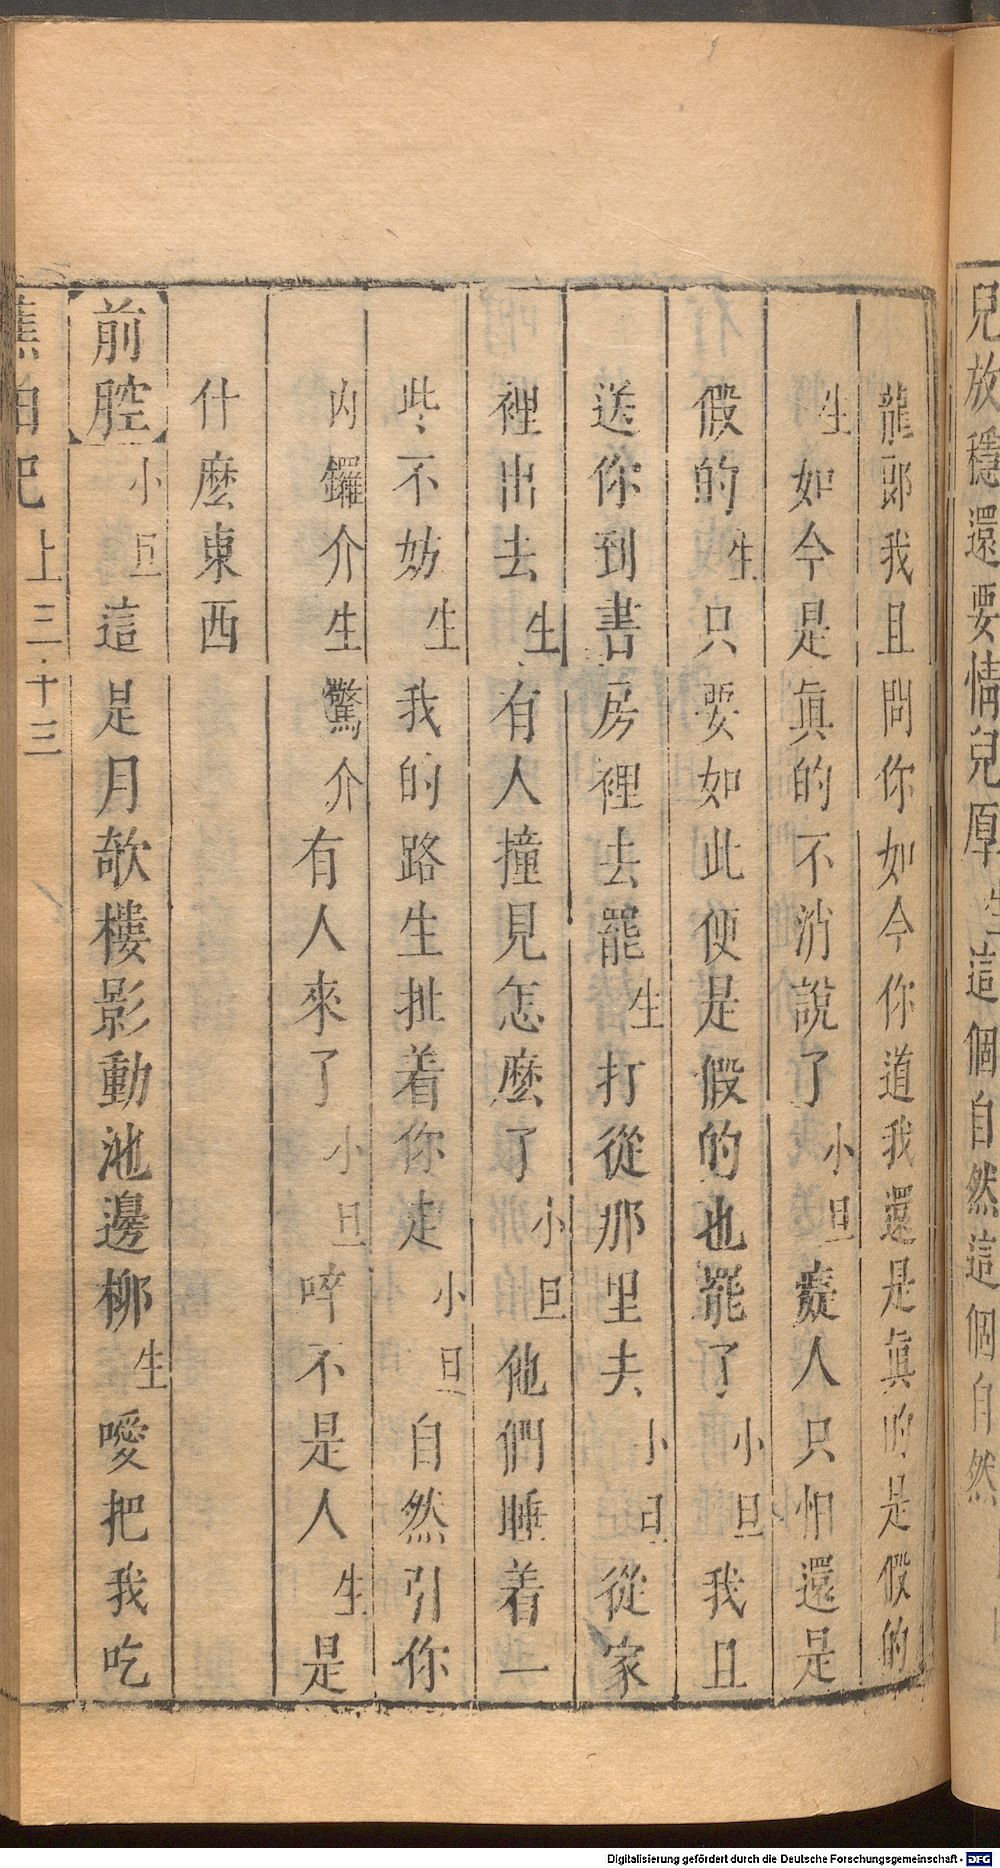 兒放穩還要情兒厚生這個自然這個自然
龍郎我且問你如今你道我還是眞的是假的
生如今是眞的不消說了小旦癡人只怕還是
假的生只要如此便是假的也罷了小旦我且
送你到書房裡去罷生打從那里去小旦從家
裡出去生有人撞見怎麽了小旦他們睡着一
些不妨生我的路生扯着你走小旦自然引你
内鑼介生驚介有人來了小旦啐不是人生是
什麽東西
前腔小旦這是月欹樓影動池邊柳生噯把我吃
蕉帕記上三十三
Digitalisierung gefördert durch die Deutsche Forschungsgemeinschaft - DFG